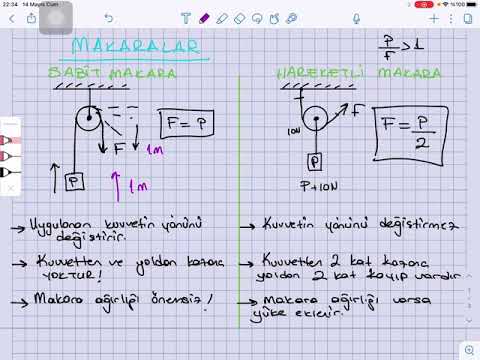 22:34 14 Mayıs Cum
%100
MAKARALAR
P/F > 1
SABİT MAKARA
HAREKETLİ MAKARA
F = P
F
1m
P
1m
10N
F
F = P/2
P
P+10N
→ Uygulanan kuvvetin yönünü
değiştirir.
→ Kuvvetten ve yoldan kazanç
YOKTUR!
→ Makara ağırlığı önemsiz!
→ Kuvvetin yönünü değiştirmez
→ Kuvvetten 2 kat kazanç
yoldan 2 kat kayıp vardır
→ Makara ağırlığı varsa
yüke eklenir.